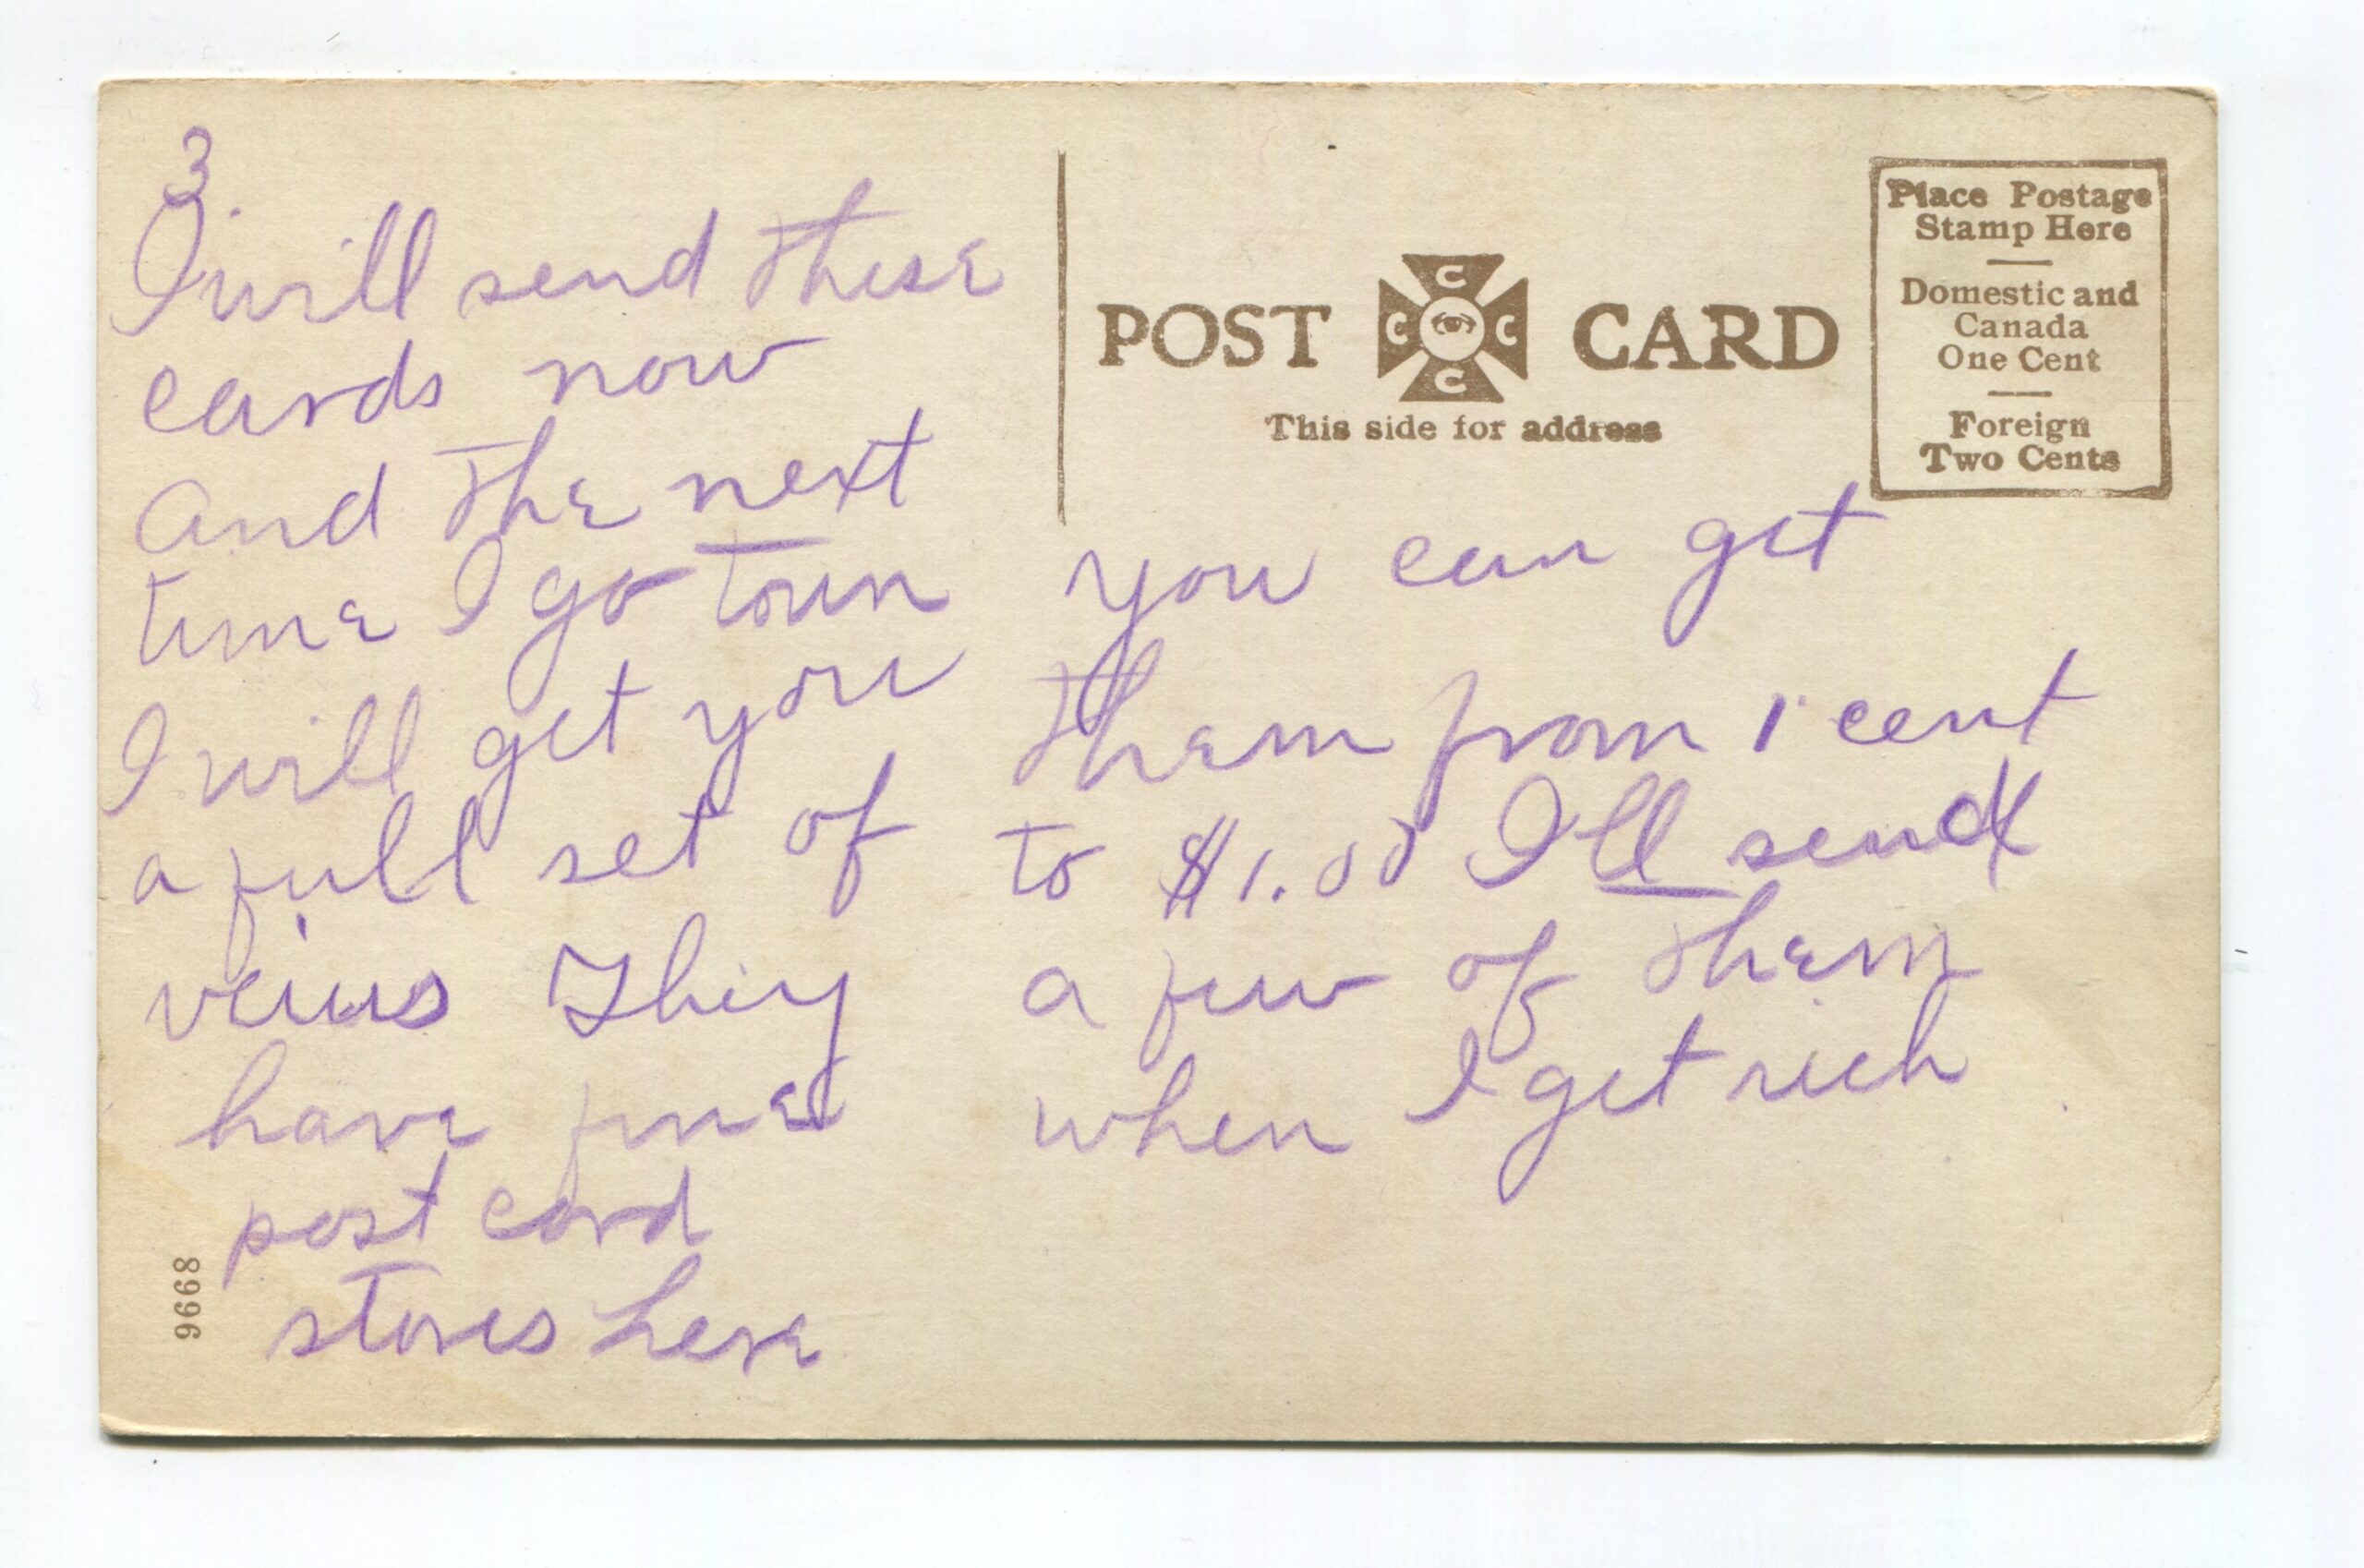 3
I will send these
cards now
and the next
time I go town
I will get you
a full set of
veiws They
have fine
post card
stores here
9668
POST CARD
C
C C
C
This side for address
Place Postage
Stamp Here
Domestic and
Canada
One Cent
Foreign
Two Cents
you can get
them from 1 cent
to $1.00 I'll send
a few of them
when I get rich